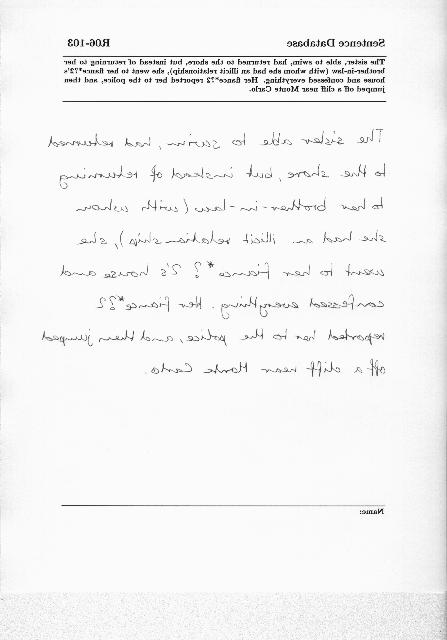 Sentence Database R06-103
The sister, able to swim, had returned to the shore, but instead of returning to her
brother-in-law (with whom she had an illicit relationship), she went to her fiance*?2's
house and confessed everything. Her fiance*?2 reported her to the police, and then
jumped off a cliff near Monte Carlo.
The sister able to swim, had returned
to the shore, but instead of returning
to her brother-in-law (with whom
she had an illicit relationship), she
went to her fiance *?2's house and
confessed everything. Her fiance*?2
reported her to the police, and then jumped
off a cliff near Monte Carlo.
Name: